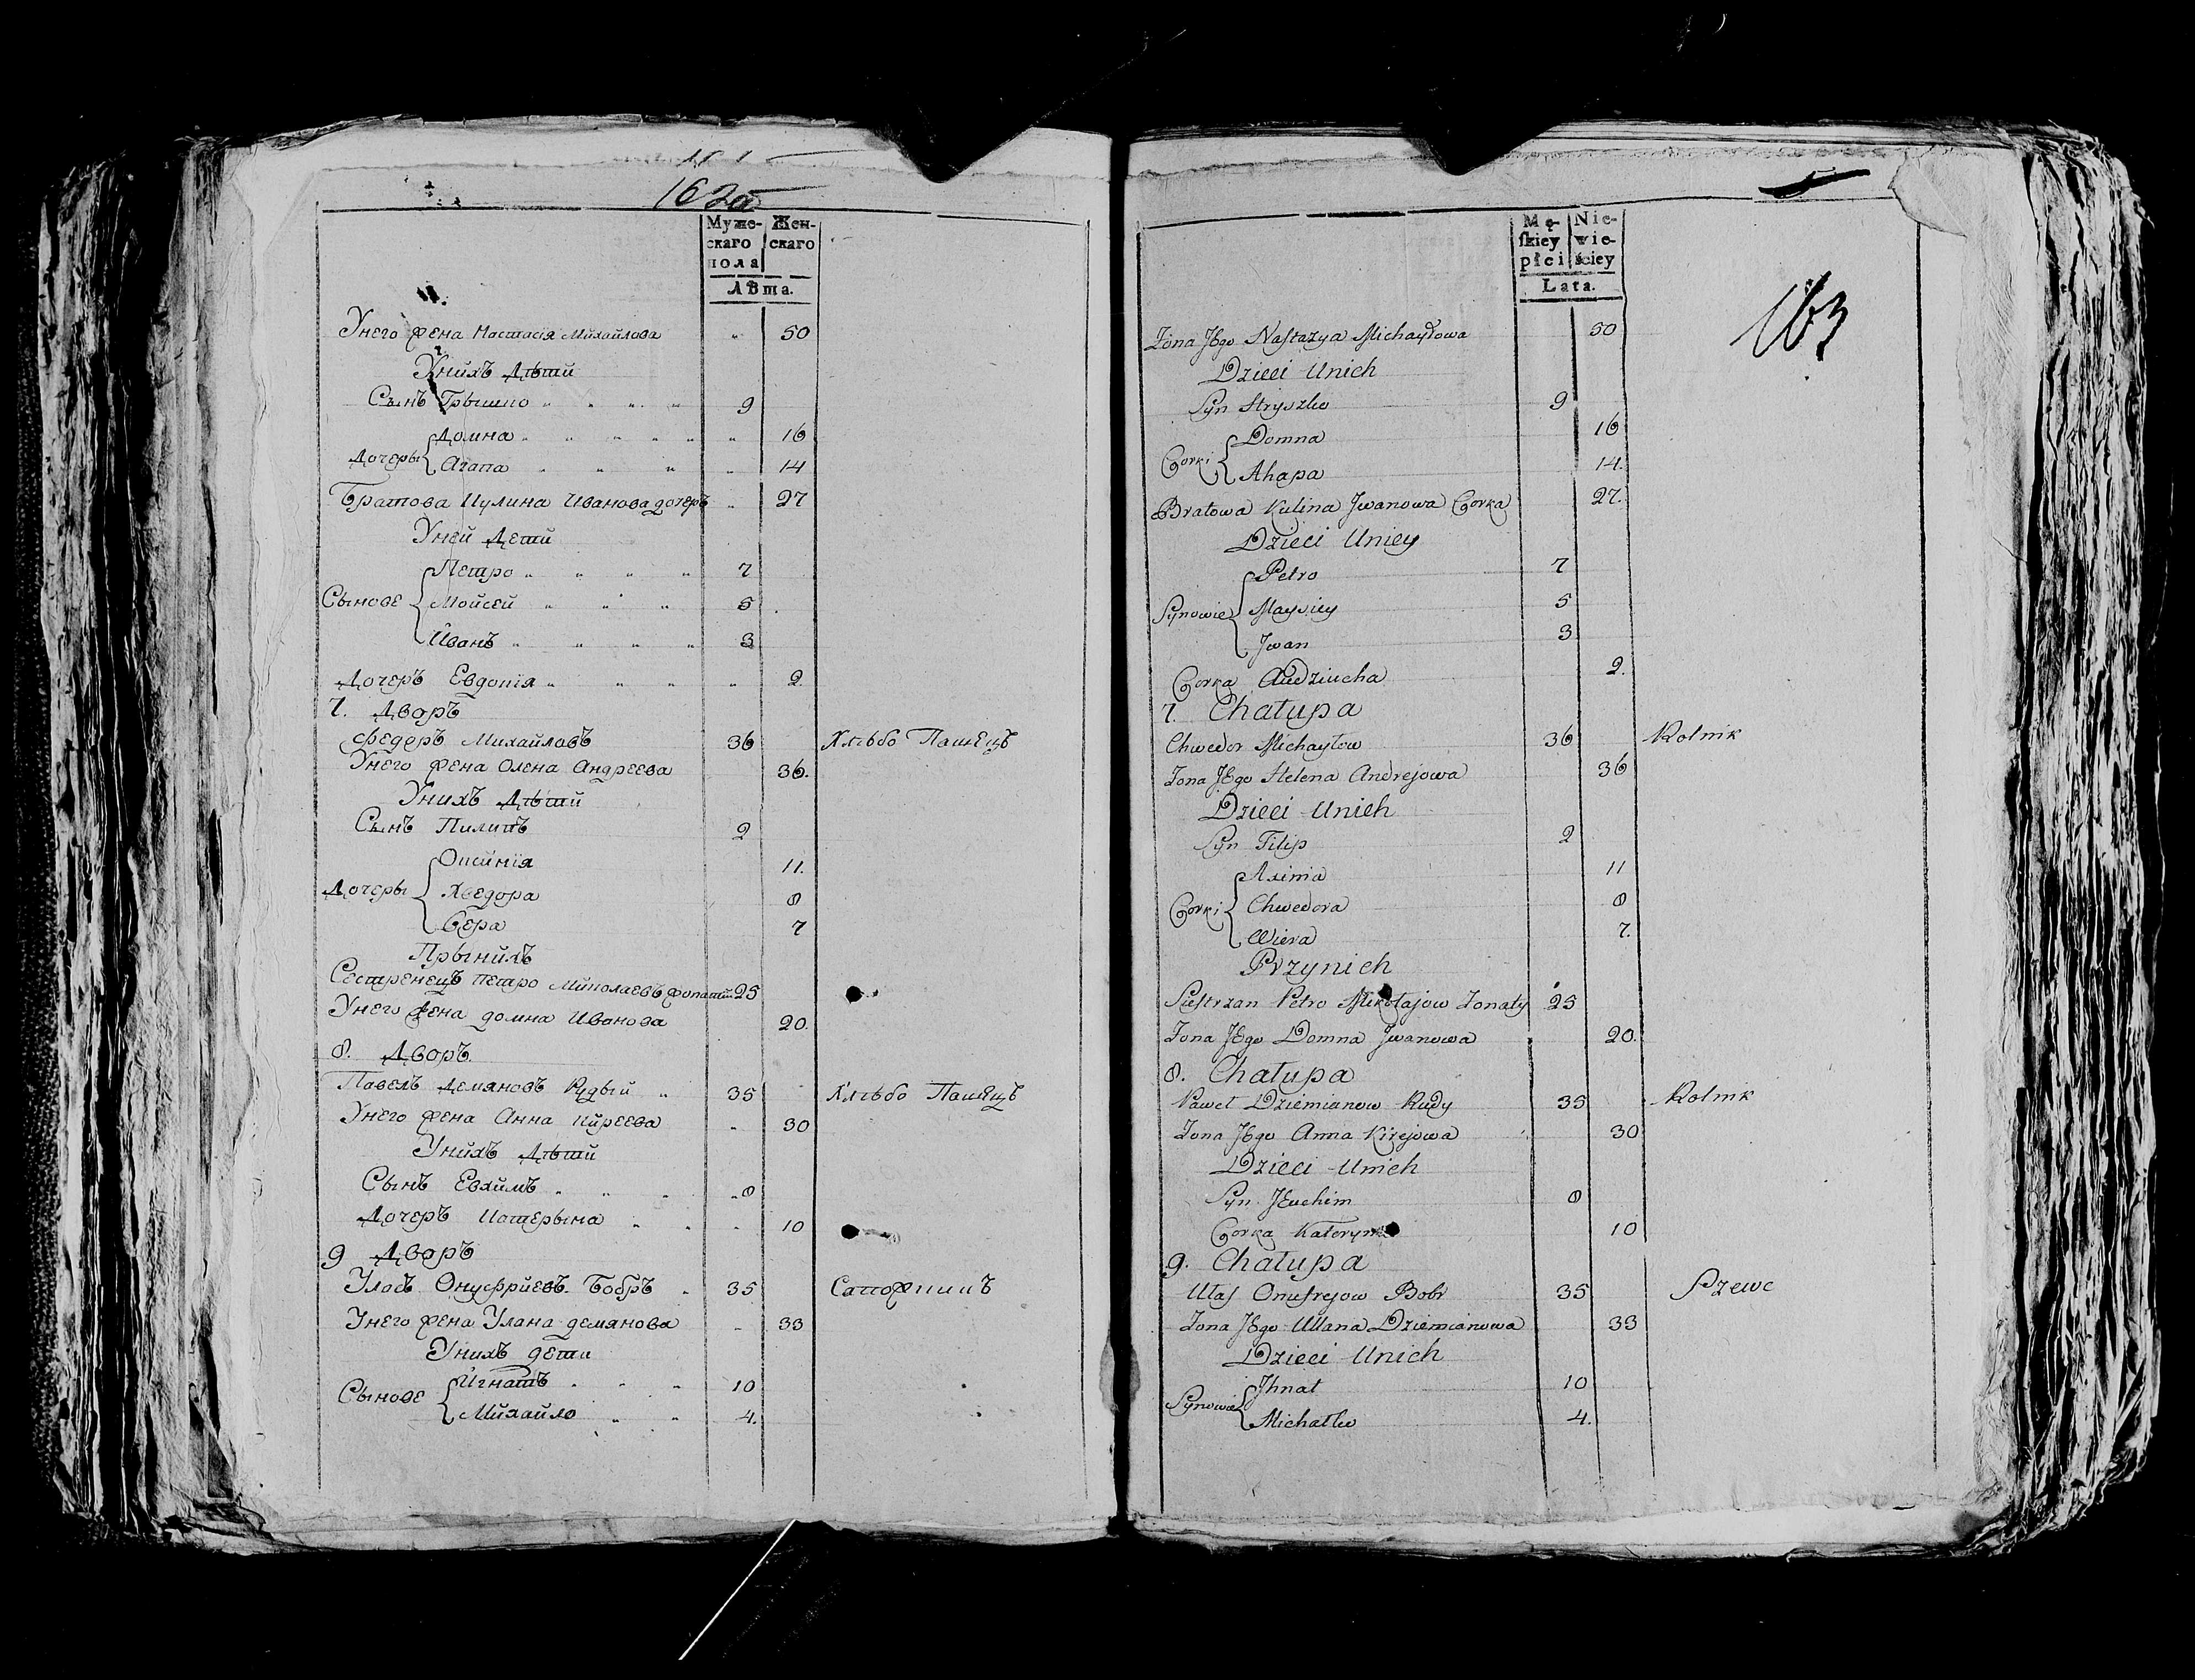 162а
Муже- Жен-
скаго скаго
пола
Лѣта.
Унего жена Настасія Михайлова " 50
Унихъ дѣти
Сынъ Грышко " " " " 9
Домна " " " " " " 16
Дочеры
Агапа " " " " 14
Братова Кулина Иванова дочеръ " 27
Уней дети
Петро " " " " 7
Сынове Мойсей " " " 5
Иванъ " " " " 3
Дочеръ Евдокія " " " " 2.
7. Дворъ
Федеръ Михайловъ 36 Хлѣбо Пашецъ
Унего жена Олена Андреева 36.
Унихъ дѣти
Сынъ Пилипъ 2
Оксинія 11.
Дочеры Хведора 8
Вера 7
Прынихъ
Сестренецъ Петро Миколаевъ жонатый 25
Унего жена домна Иванова 20.
8. Дворъ
Павелъ Демяновъ Рудый " 35 Хлѣбо Пашецъ
Унего жена Анна Киреева " 30
Унихъ дѣти
Сынъ Евхимъ " " " " 8
Дочеръ Катерына " " " 10
9 Дворъ
Уласъ Онуфриевъ Бобръ " 35 Сапожникъ
Унего жена Улана демянова " 33
Унихъ дети
Игнатъ " " " 10
Сынове
Михайло " " 4.
163
Mę- Nie-
ſkiey wie-
płci ściey
Lata.
Żona JEgo Naſtazya Michayłowa 50
Dzieci Unich
Syn Hryszko 9
Domna 16
Corki
Ahapa 14.
Bratowa Kulina Jwanowa Corka 27.
Dzieci Uniey
Petro 7
Synowie Maysiey 5
Jwan 3
Corka Audziucha 2.
7. Chałupa
Chwedor Michayłow 36 Rolnik
Żona JEgo Helena Andrejowa 36
Dzieci Unich
Syn Filip 2
Axinia 11
Corki Chwedora 8
Wiera 7.
Przynich
Sieſtrzan Petro Mikołajow Żonaty 25
Żona JEgo Domna Jwanowa 20.
8. Chałupa
Paweł Dziemianow Rudy 35 Rolnik
Żona JEgo Anna Kirejowa 30
Dzieci Unich
Syn JEuchim 8
Corka Kateryna 10
9. Chałupa
Ułaſ Onufrejow Bobr 35 Szewc
Żona JEgo Ullana Dziemianowa 33
Dzieci Unich
Jhnat 10
Synowie
Michałko 4.